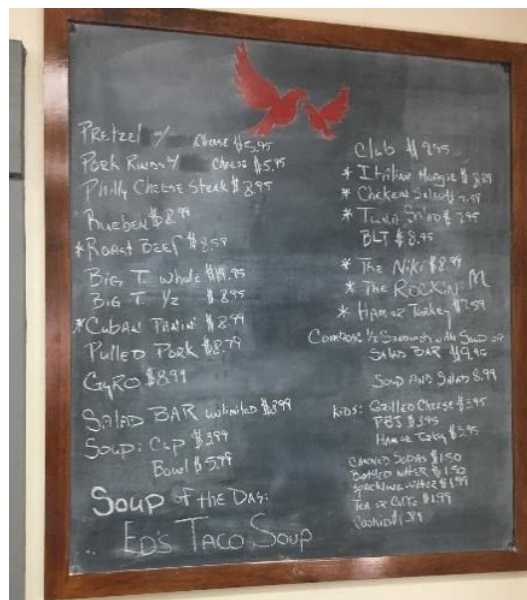 Pretzel w/ Cheese $5.95
Pork Rinds w/ Cheese $5.95
Philly Cheese Steak $8.95
Rueben $8.99
* Roast Beef $8.59
Big T. Whole $14.95
Big T. 1/2 $8.95
* Cuban Panini $8.99
Pulled Pork $8.79
Gyro $8.99
Salad BAR unlimited $8.99
Soup: Cup $3.99
Bowl $5.99
Soup of the Day:
Ed's Taco Soup
Club $8.95
* Italian Hoagie $8.89
* Chicken Salad $
* Tuna Salad $7.95
BLT $8.95
* The Niki $8.99
* The Rockin M
* Ham or Turkey $7.59
1/2 Sandwich with Soup or
Salad BAR $9.95
Soup and Salad 8.99
Kids: Grilled Cheese $3.95
PBJ $3.95
Ham or Turkey $3.95
Canned Sodas $1.50
Bottled Water $1.50
Sparkling Water $1.99
Tea or Coffee $1.99
Cookie $1.39